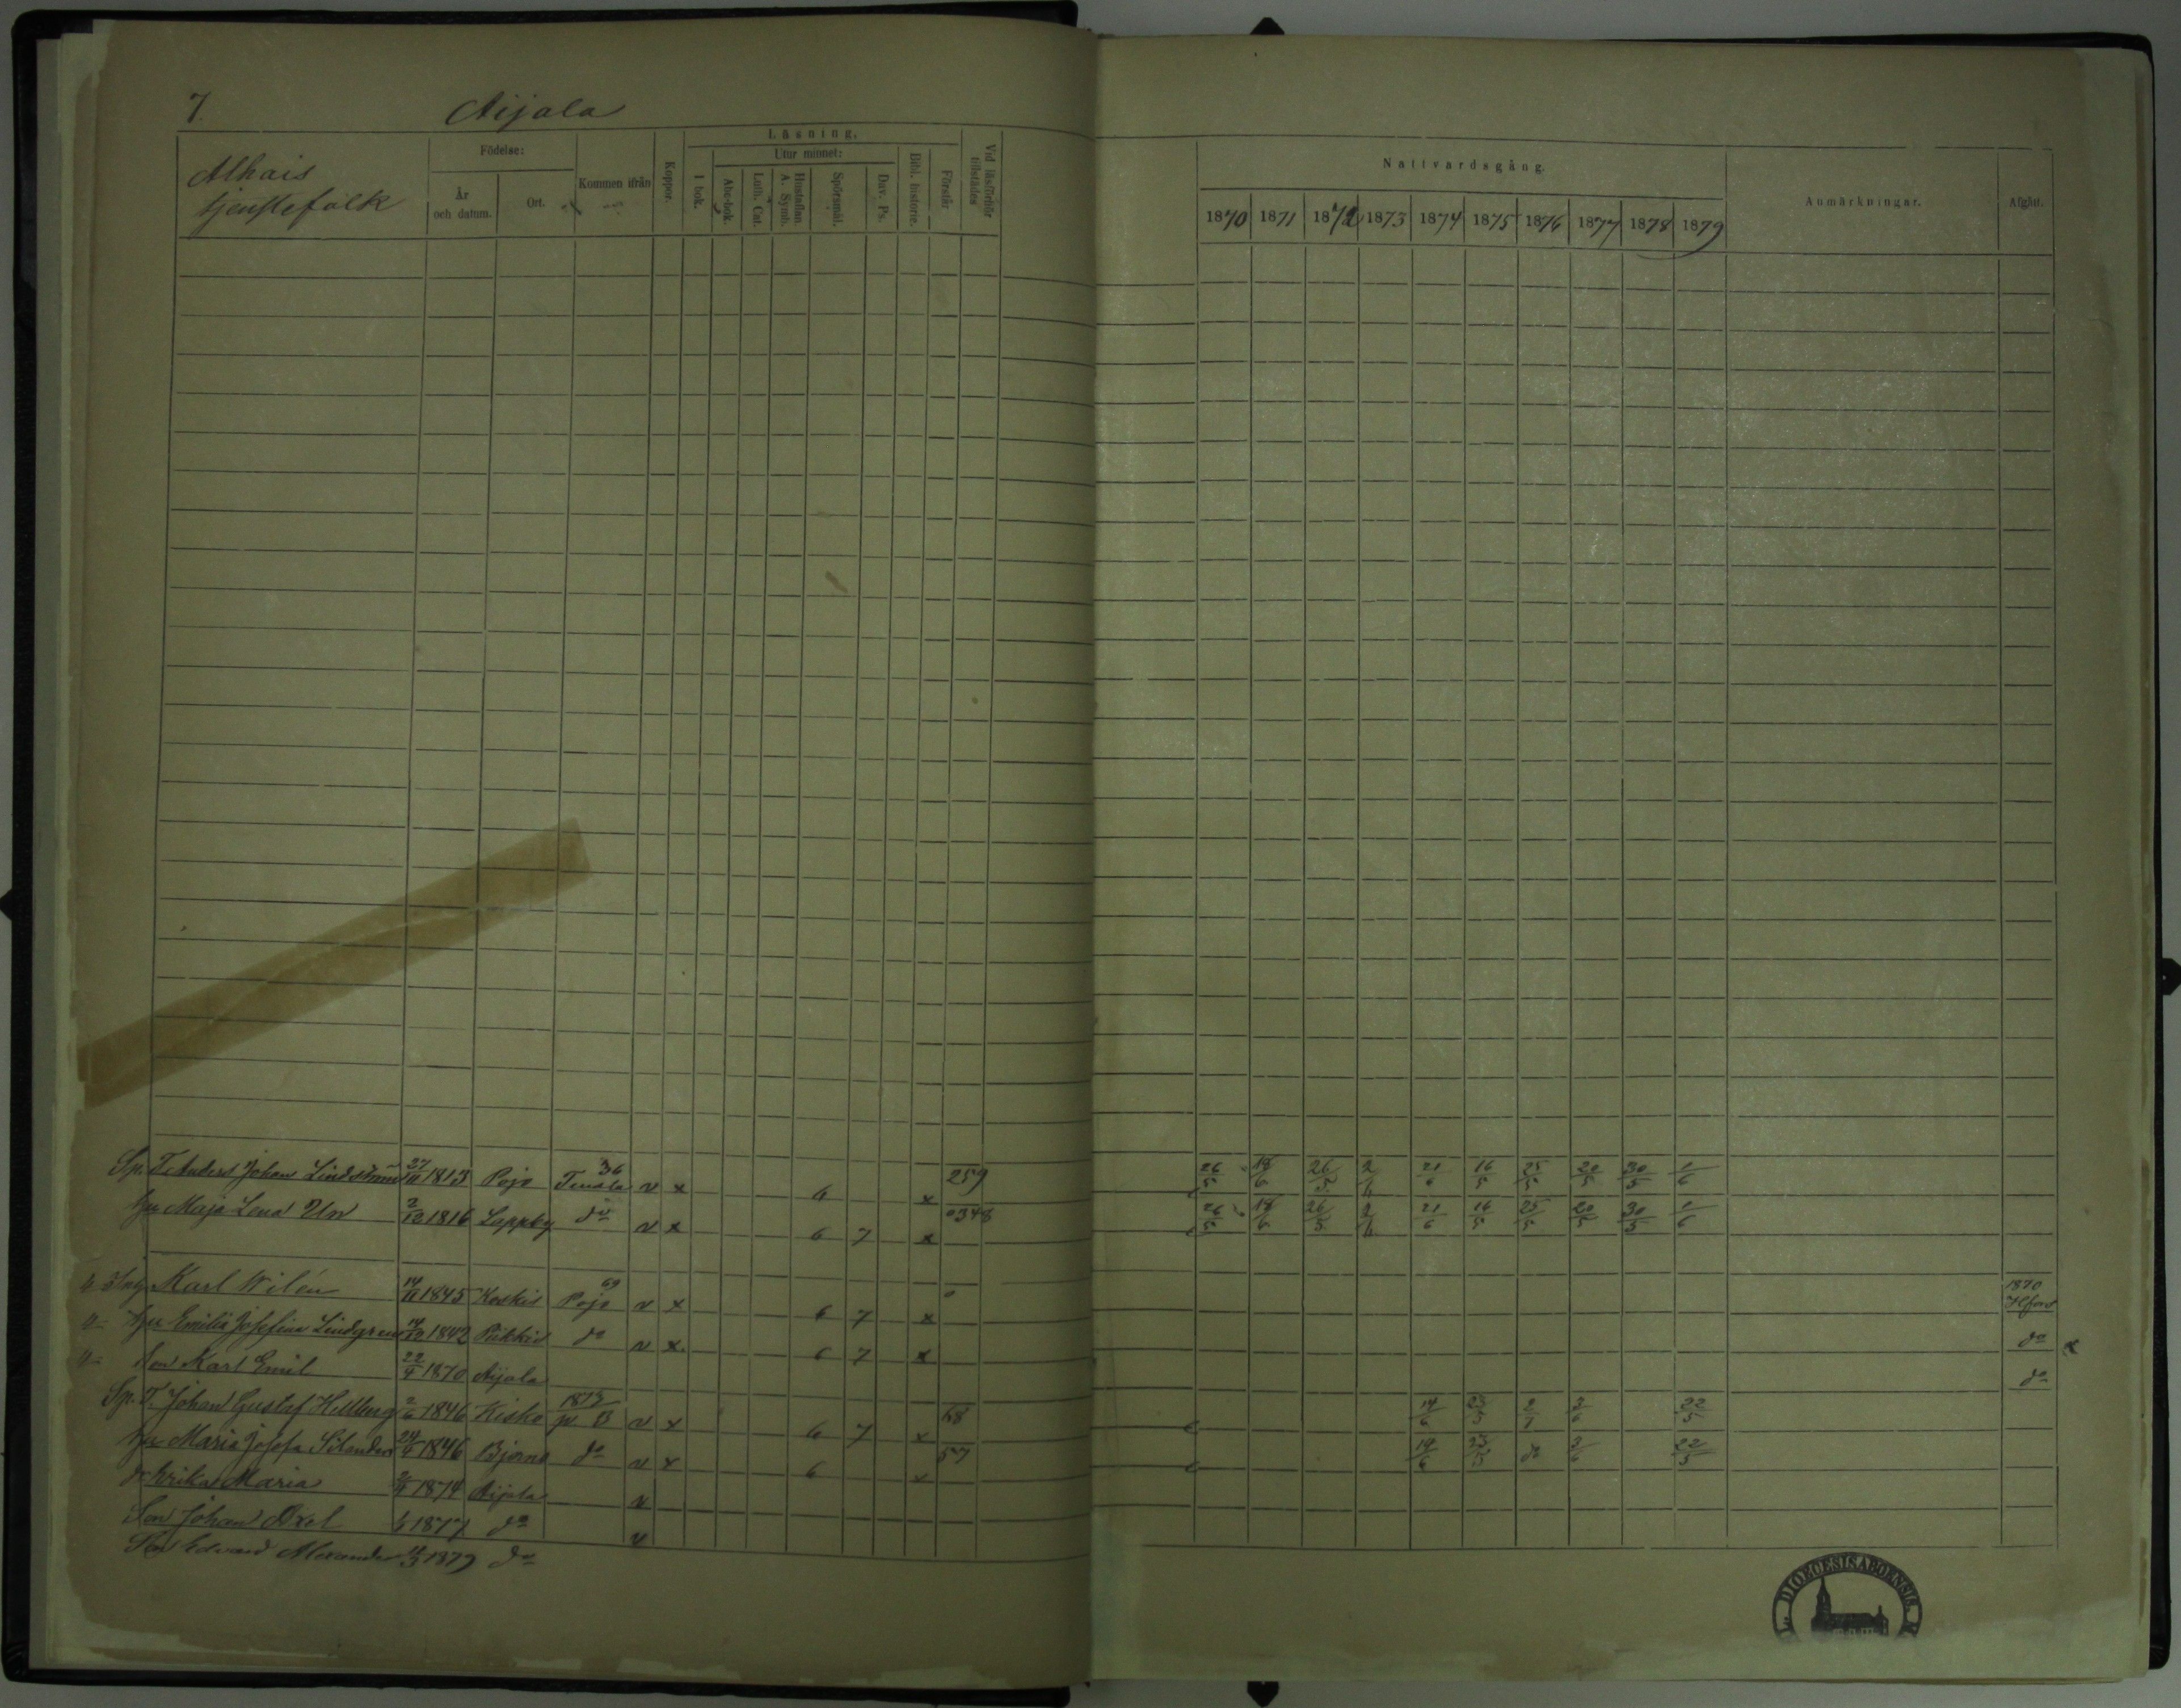 7.
Aijala
Alhais
tjenstefolk
Födelse:
År
och datum.
Ort.
Kommen ifrån
Koppor.
Läsning.
I bok.
Utur minnet:
Abc-bok.
Luth. Cat.
Hustaflan.
A. Symb.
Spörsmål.
Dav. Ps.
Bibl. historie.
Förstår
Vid läsförhör
tillstädes
Nattvardsgång.
1870 1871 1872 1873 1874 1875 1876 1877 1878 1879
Anmärkningar.
Afgått.
Sp. T. Anders Johan Lindström 27/11 1813 Pojo 36 Tenala v x 6 x 259 26/5 18/6 26/5 2/6 21/6 16/5 25/5 20/5 30/5 1/6
hu Maja Lena Un 2/12 1816 Lappby do v x 6 7 x 0348 26/5 18/6 26/5 2/6 21/6 16/5 25/5 20/5 30/5 1/6
Karl Wilén 14/11 1845 Koskis 69 Pojo v x 6 7 x 0 1870 Hfors
hu Emilia Josefina Lindgren 14/12 1842 Pükkis do v x 6 7 x do
Son Karl Emil 22/4 1870 Aijala do
Sp. T. Johan Gustaf Hellberg 2/6 1846 Kisko 1873 v x 6 7 x 68 14/6 23/5 2/7 3/6 22/5
hu Maria Josefa Silander 24/4 1846 Bjerno do v x 6 x 57 14/6 23/5 do 3/6 22/5
Erika Maria 1874 Aijala v
Son Johan Axel 1877 do v
Son Edvard Alexander 12/3 1879 do
DIOECESIS ABOENSIS